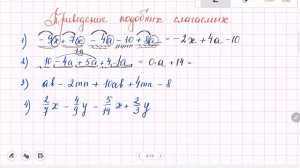 Приведение подобных слагаемых
1) -9x + 7x - 4a - 10 + 8a = -2x + 4a - 10
2) 10 - 4a + 5a + 4 - 1a = 0·a + 14 =
3) ab - 2mn + 10ab + 4mn - 8
4) 2/7 x - 4/9 y - 5/14 x + 2/3 y